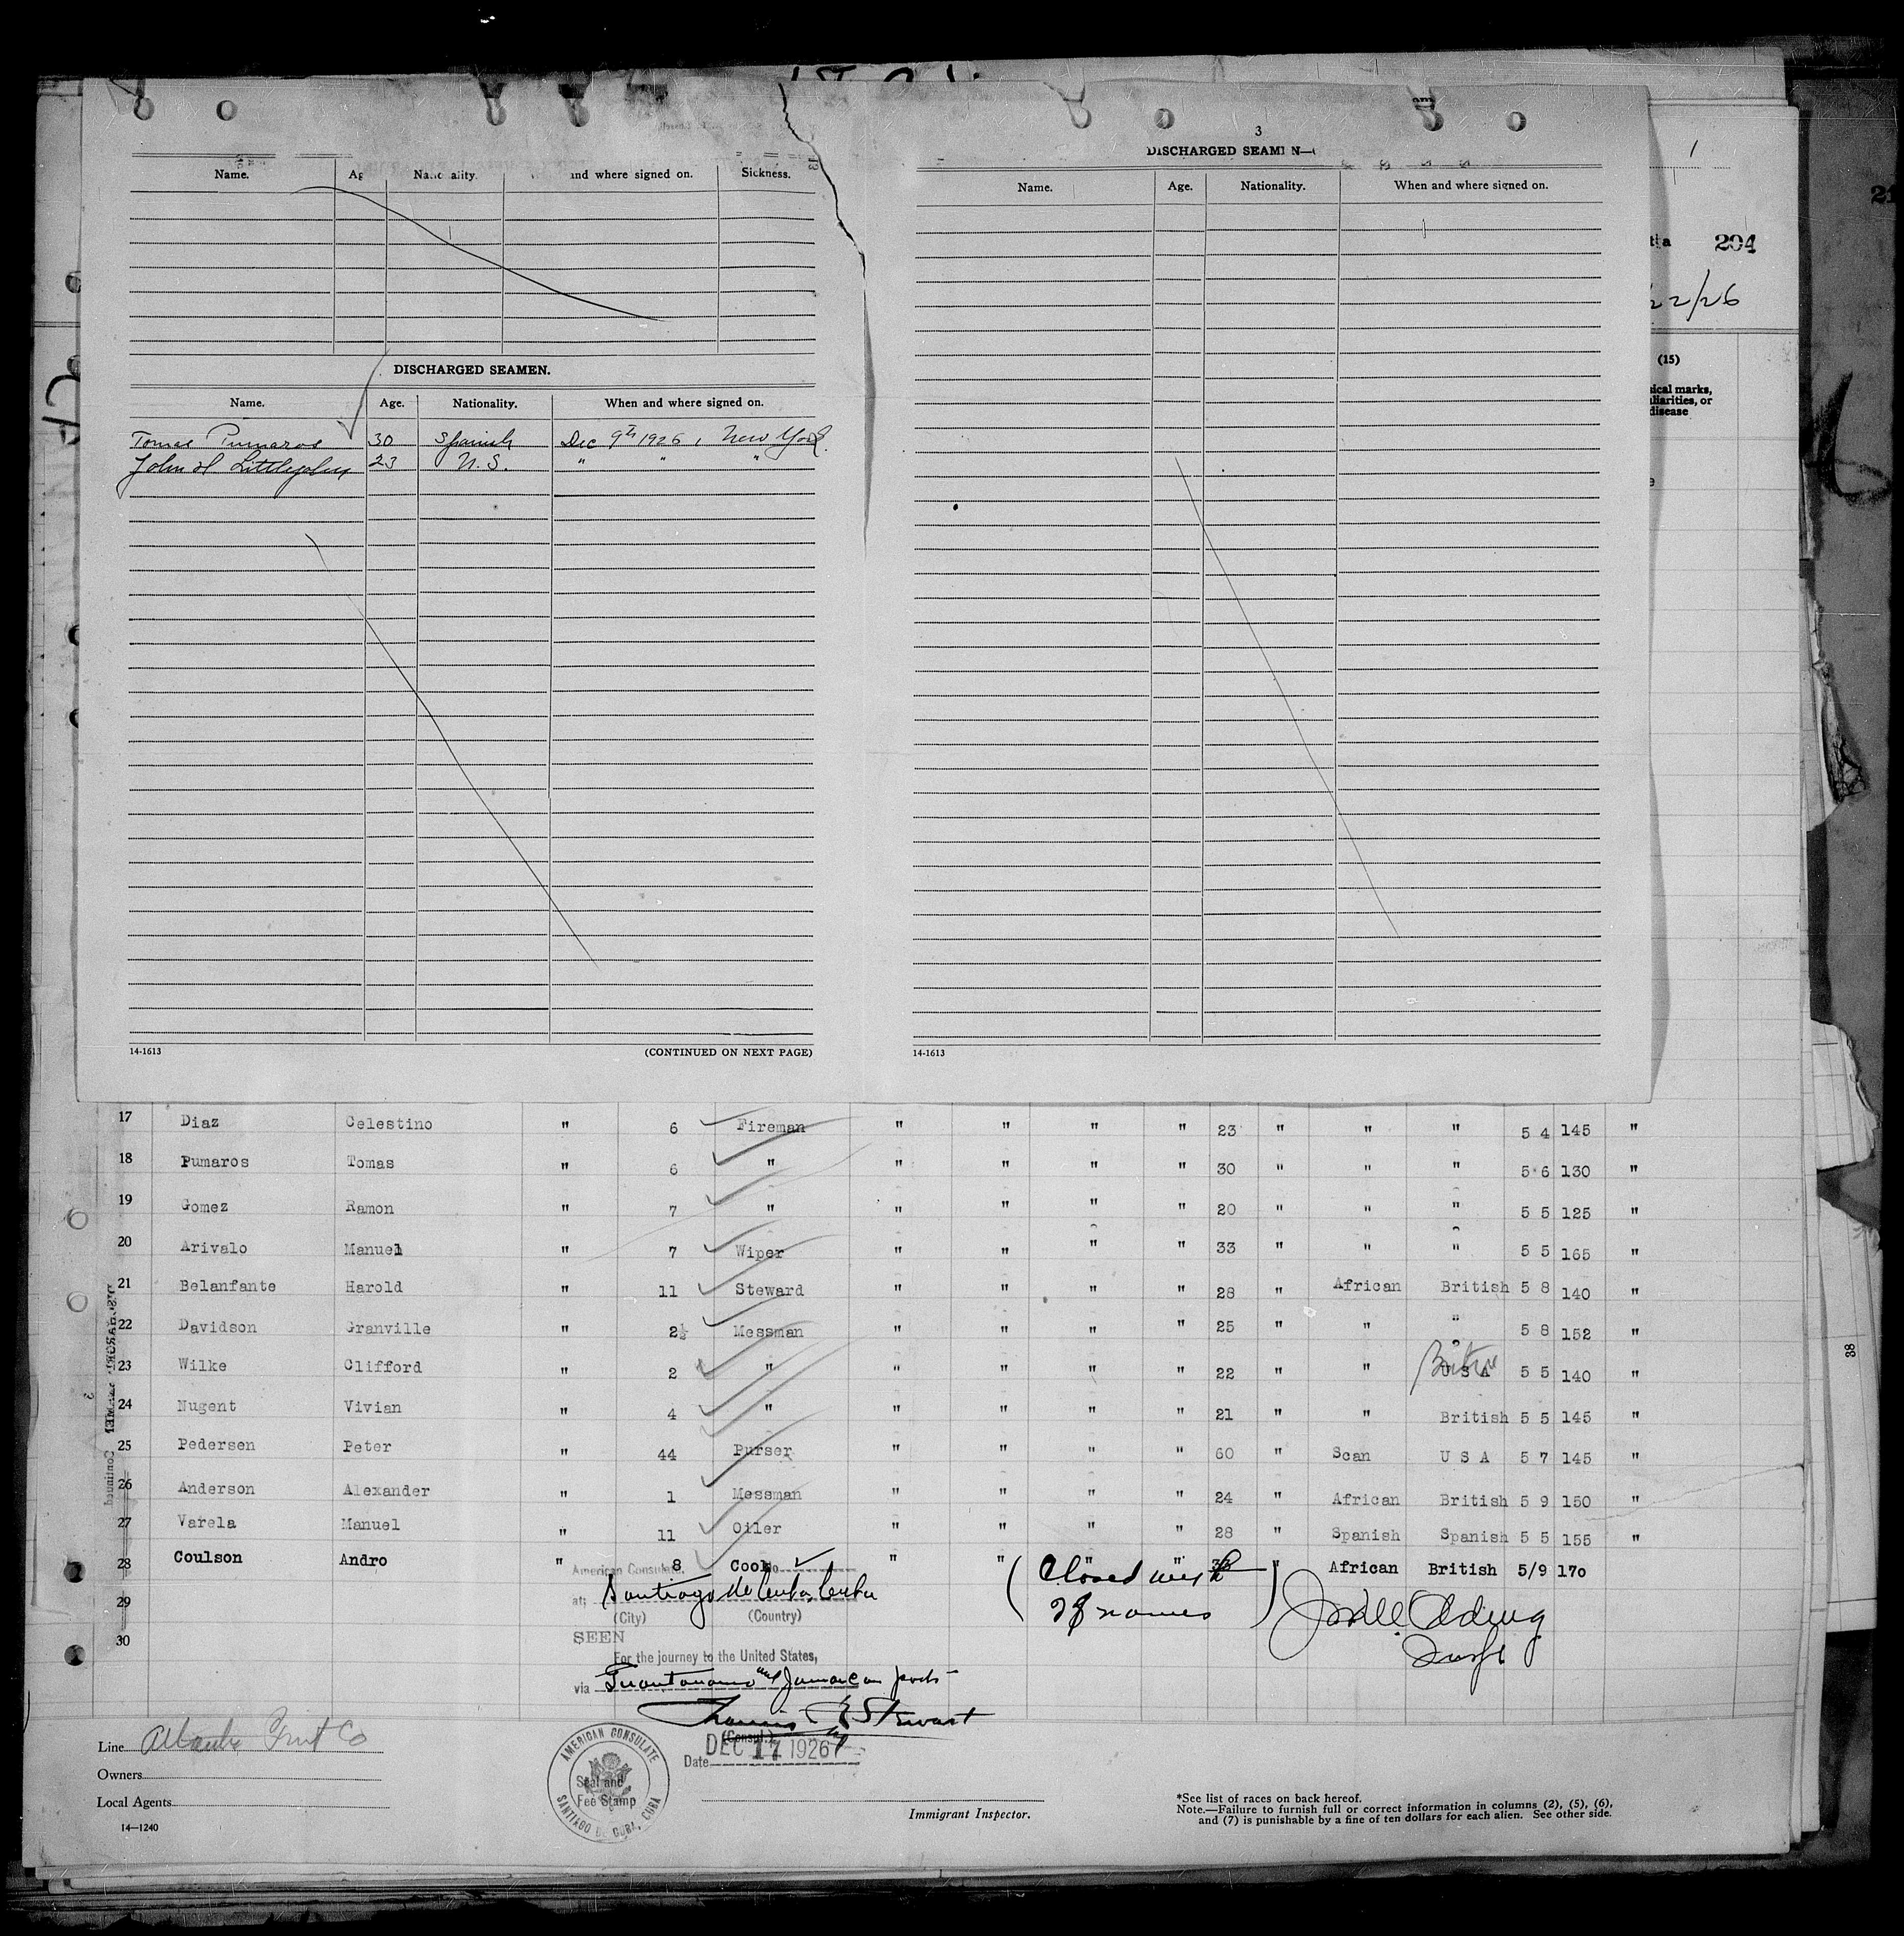 Name. Nationality. and where signed on. Sickness.
DISCHARGED SEAMEN.
Name. Age. Nationality. When and where signed on.
Tomas Pumaros 30 Spanish Dec 9th 1926, New York.
John H. 23 U.S. " " "
14-1613 (CONTINUED ON NEXT PAGE)
3
DISCHARGED SEAMEN—
Name. Age. Nationality. When and where signed on.
14-1613
1
21
204
22/26
(15)
marks,
or
disease
38
17 Diaz Celestino " 6 Fireman " " " " 23 " " " 5 4 145 "
18 Pumaros Tomas " 6 " " " " " 30 " " " 5 6 130 "
19 Gomez Ramon " 7 " " " " " 20 " " " 5 5 125 "
20 Arivalo Manuel " 7 Wiper " " " " 33 " " " 5 5 165 "
21 Belanfante Harold " 11 Steward " " " " 28 " African British 5 8 140 "
22 Davidson Granville " 2½ Messman " " " " 25 " " " 5 8 152 "
23 Wilke Clifford " 2 " " " " " 22 " " U S A 5 5 140 "
24 Nugent Vivian " 4 " " " " " 21 " " British 5 5 145 "
25 Pedersen Peter " 44 Purser " " " " 60 " Scan U S A 5 7 145 "
26 Anderson Alexander " 1 Messman " " " " 24 " African British 5 9 150 "
27 Varela Manuel " 11 Oiler " " " " 28 " Spanish Spanish 5 5 155 "
28 Coulson Andro " 8 Cook " " " " " African British 5/9 170
29
30
American Consulate,
at: Santiago de Cuba, Cuba
(City) (Country)
SEEN
For the journey to the United States,
via Guantanamo and Jamaican ports
Stewart
(Consul.)
Date DEC 17 1926
(Closed with
28 names)
Line Atlantic Fruit Co
Owners
Local Agents
14—1240
AMERICAN CONSULATE
Seal and
Fee Stamp
SANTIAGO DE CUBA, CUBA
Immigrant Inspector.
*See list of races on back hereof.
Note.—Failure to furnish full or correct information in columns (2), (5), (6),
and (7) is punishable by a fine of ten dollars for each alien. See other side.